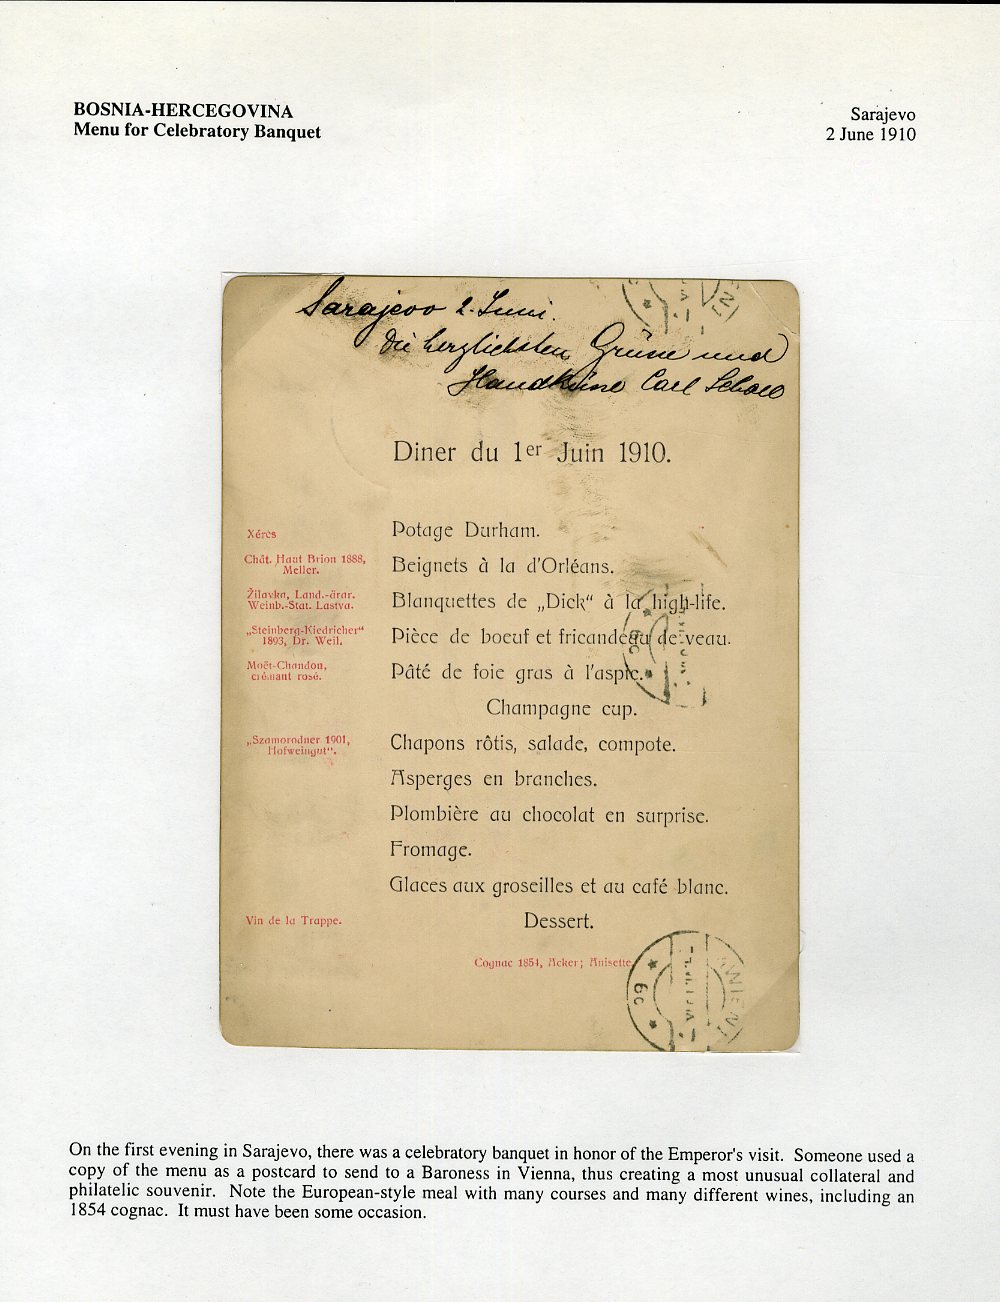 BOSNIA-HERCEGOVINA
Menu for Celebratory Banquet
Sarajevo
2 June 1910
Sarajevo 2. Juni.
Die herzlichsten Grüsse und
Handküsse Carl
Diner du 1er Juin 1910.
Xérès
Potage Durham.
Chât. Haut Brion 1888,
Meller.
Beignets à la d'Orléans.
Žilavka, Land.-ärar.
Weinb.-Stat. Lastva.
Blanquettes de „Dick“ à la high-life.
„Steinberg-Kiedricher“
1893, Dr. Weil.
Pièce de boeuf et fricandeau de veau.
Moët-Chandon,
crémant rosé.
Pâté de foie gras à l'aspic.
Champagne cup.
„Szamorodner 1901,
Hofweingut“.
Chapons rôtis, salade, compote.
Asperges en branches.
Plombière au chocolat en surprise.
Fromage.
Glaces aux groseilles et au café blanc.
Vin de la Trappe.
Dessert.
Cognac 1854, Acker; Anisette
WIEN
On the first evening in Sarajevo, there was a celebratory banquet in honor of the Emperor's visit. Someone used a
copy of the menu as a postcard to send to a Baroness in Vienna, thus creating a most unusual collateral and
philatelic souvenir. Note the European-style meal with many courses and many different wines, including an
1854 cognac. It must have been some occasion.